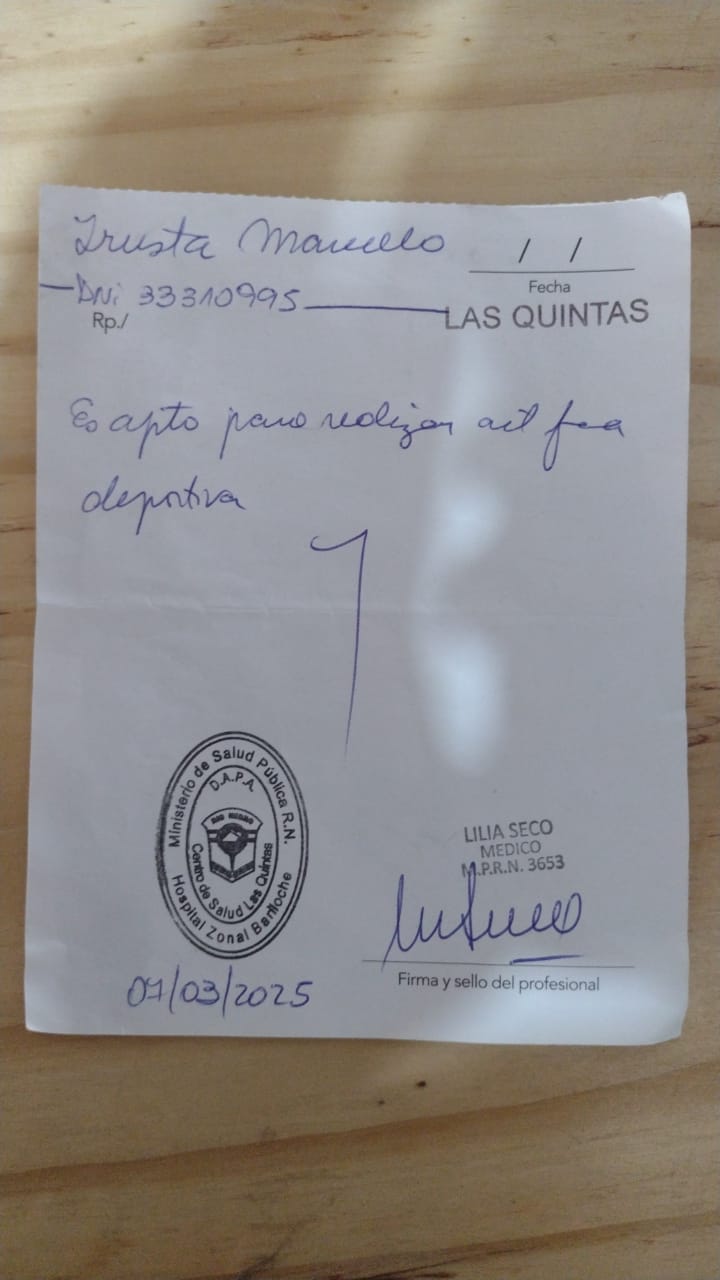 Irusta Marcelo
/ /
Fecha
DNi 33310995
LAS QUINTAS
Rp./
Es apto para realizar act fca
deportiva
Ministerio de Salud Pública R.N.
D.A.P.A.
RIO NEGRO
Centro de Salud Las Quintas
Hospital Zonal Bariloche
LILIA SECO
MEDICO
M.P.R.N. 3653
Firma y sello del profesional
07/03/2025